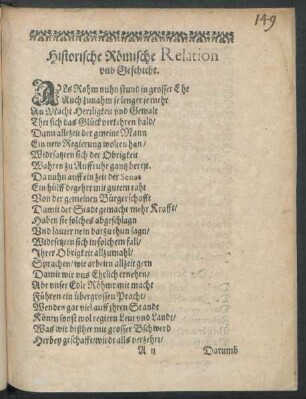 149
Historische Römische Relation
vnd Geschicht.
Als Rohm nuhn stund in grosser Ehr
Auch zunahm je lenger je mehr
An Macht Herrligkeit vnd Gewalt
Thet sich das Glück verkehren bald/
Dann allezeit der gmeine Mann
Ein new Regierung wolten han/
Widrsatzten sich der Obrigkeit
Wahren zu Auffruhr gantz bereit.
Da nuhn auff ein zeit der Senat
Ein hülff begehrt mit gutem raht
Von der gemeinen Bürgerschafft
Damit der Stadt gemacht mehr Krafft/
Haben sie solches abgeschlagn
Vnd lauter nein darzu thun sagn/
Widrsetzten sich in solchem fall/
Ihrer Obrigkeit allzumahl/
Sprachen/ wir arbeitn allzeit gern
Damit wir vns Ehrlich ernehrn/
Abr vnser Edle Röhmr mit macht
Führen ein übergrossen Pracht/
Wenden gar viel auff jhren Stande
Könen sonst wol regiern Leut vnd Landt/
Was wir bißher mit grosser Bschwerd
Herbey geschafft/ wirdt alls verzehrt/
A ij Darumb